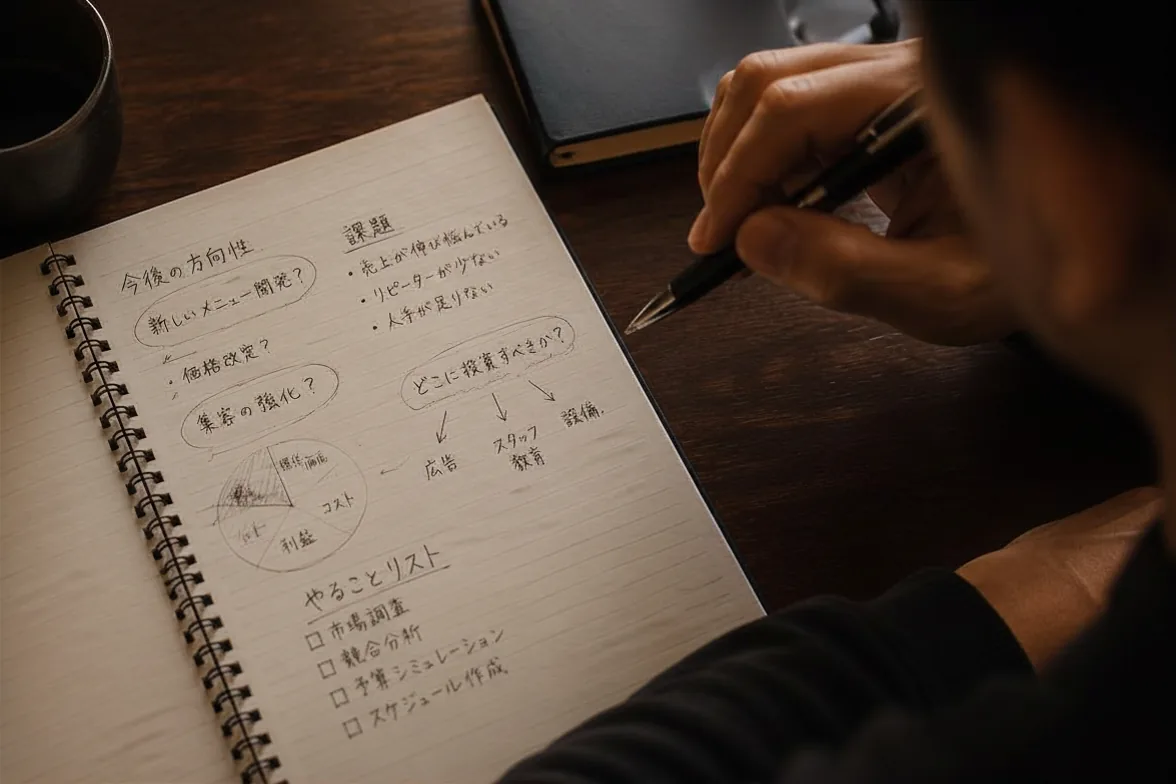 今後の方向性
新しいメニュー開発?
・価格改定?
集客の強化?
課題
・売上が伸び悩んでいる
・リピーターが少ない
・人手が足りない
どこに投資すべきか?
広告
スタッフ
教育
設備
コスト
利益
やることリスト
□ 市場調査
□ 競合分析
□ 予算シミュレーション
□ スケジュール作成